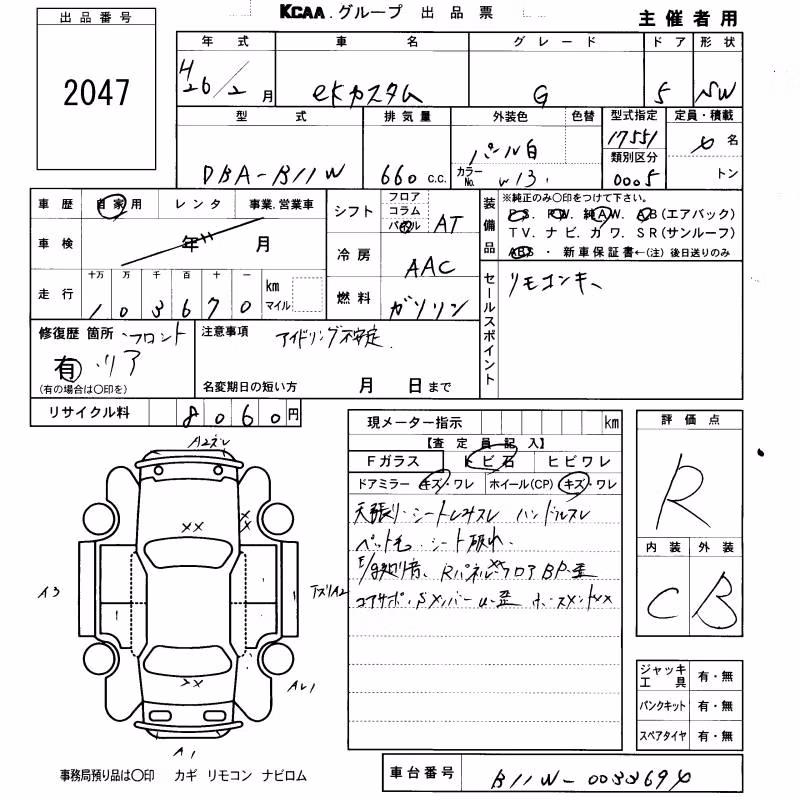 KCAA.グループ 出品票
主催者用
出品番号
2047
年式 車名 グレード ドア 形状
H26/2月 eKカスタム G 5 SW
型式 排気量 外装色 色替 型式指定 定員・積載
DBA-B11W 660 c.c. パール白 カラーNo. W13 17551 4名
類別区分
0005 トン
車歴 自家用 レンタ 事業.営業車
車検 年 月
走行 十万 万 千 百 十 一 km マイル
103670
シフト フロア コラム パネル AT
冷房 AAC
燃料 ガソリン
装備品 ※純正のみ○印をつけて下さい。
PS. PW. 純AW. AB(エアバック)
TV. ナビ. カワ. SR(サンルーフ)
ABS・新車保証書←(注)後日送りのみ
セールスポイント
リモコンキー
修復歴 箇所 ・フロント
有 ・リア
(有の場合は○印を)
注意事項 アイドリング不安定
名変期日の短い方 月 日まで
リサイクル料 8060円
現メーター指示 km
【査定員記入】
Fガラス トビ石 ヒビワレ
ドアミラー キズ・ワレ ホイール(CP) キズ・ワレ
天張り・シートレカスレ ハンドルスレ
ペット毛・シート破れ
Rパネル フロア BP-歪
コアサポ・Sメンバー
評価点
R
内装 外装
C B
ジャッキ工具 有・無
パンクキット 有・無
スペアタイヤ 有・無
××
××
A3
A2
××
AU1
A1
事務局預り品は○印 カギ リモコン ナビロム
車台番号 B11W-0033694